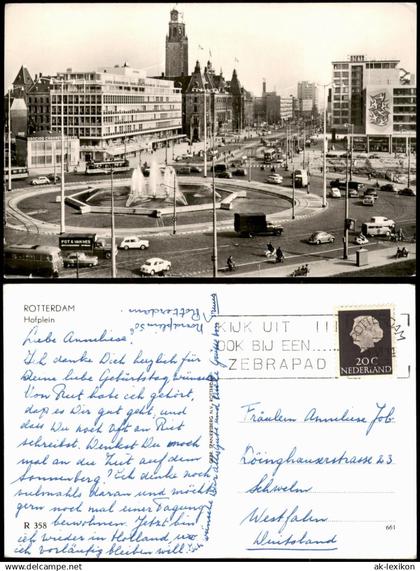 ROTTERDAM
Hofplein
R 358
Liebe Anneliese!
Ich danke Dich herzlich für
Deine liebe Geburtstagswünsche
Von Ruet habe ich gehört,
dasz es Dir gut geht, und
dass Du noch oft an Ruet
schreibst. Denkst Du noch
mal an die Zeit auf dem
Sonnenberg? Ich denke noch
manchmals daran und möchte
gern noch mal einer Tagung
bewohnen. Jetzt bin
ich wieder in Holland, wo
ich vorläufig bleiben will
Rotterdam.
KIJK UIT
OOK BIJ EEN
ZEBRAPAD
20C
NEDERLAND
Fräulein Anneliese Job
Döinghauserstrasse 23
Schwelm
Westfalen
Duitsland
661
ak-lexikon.com